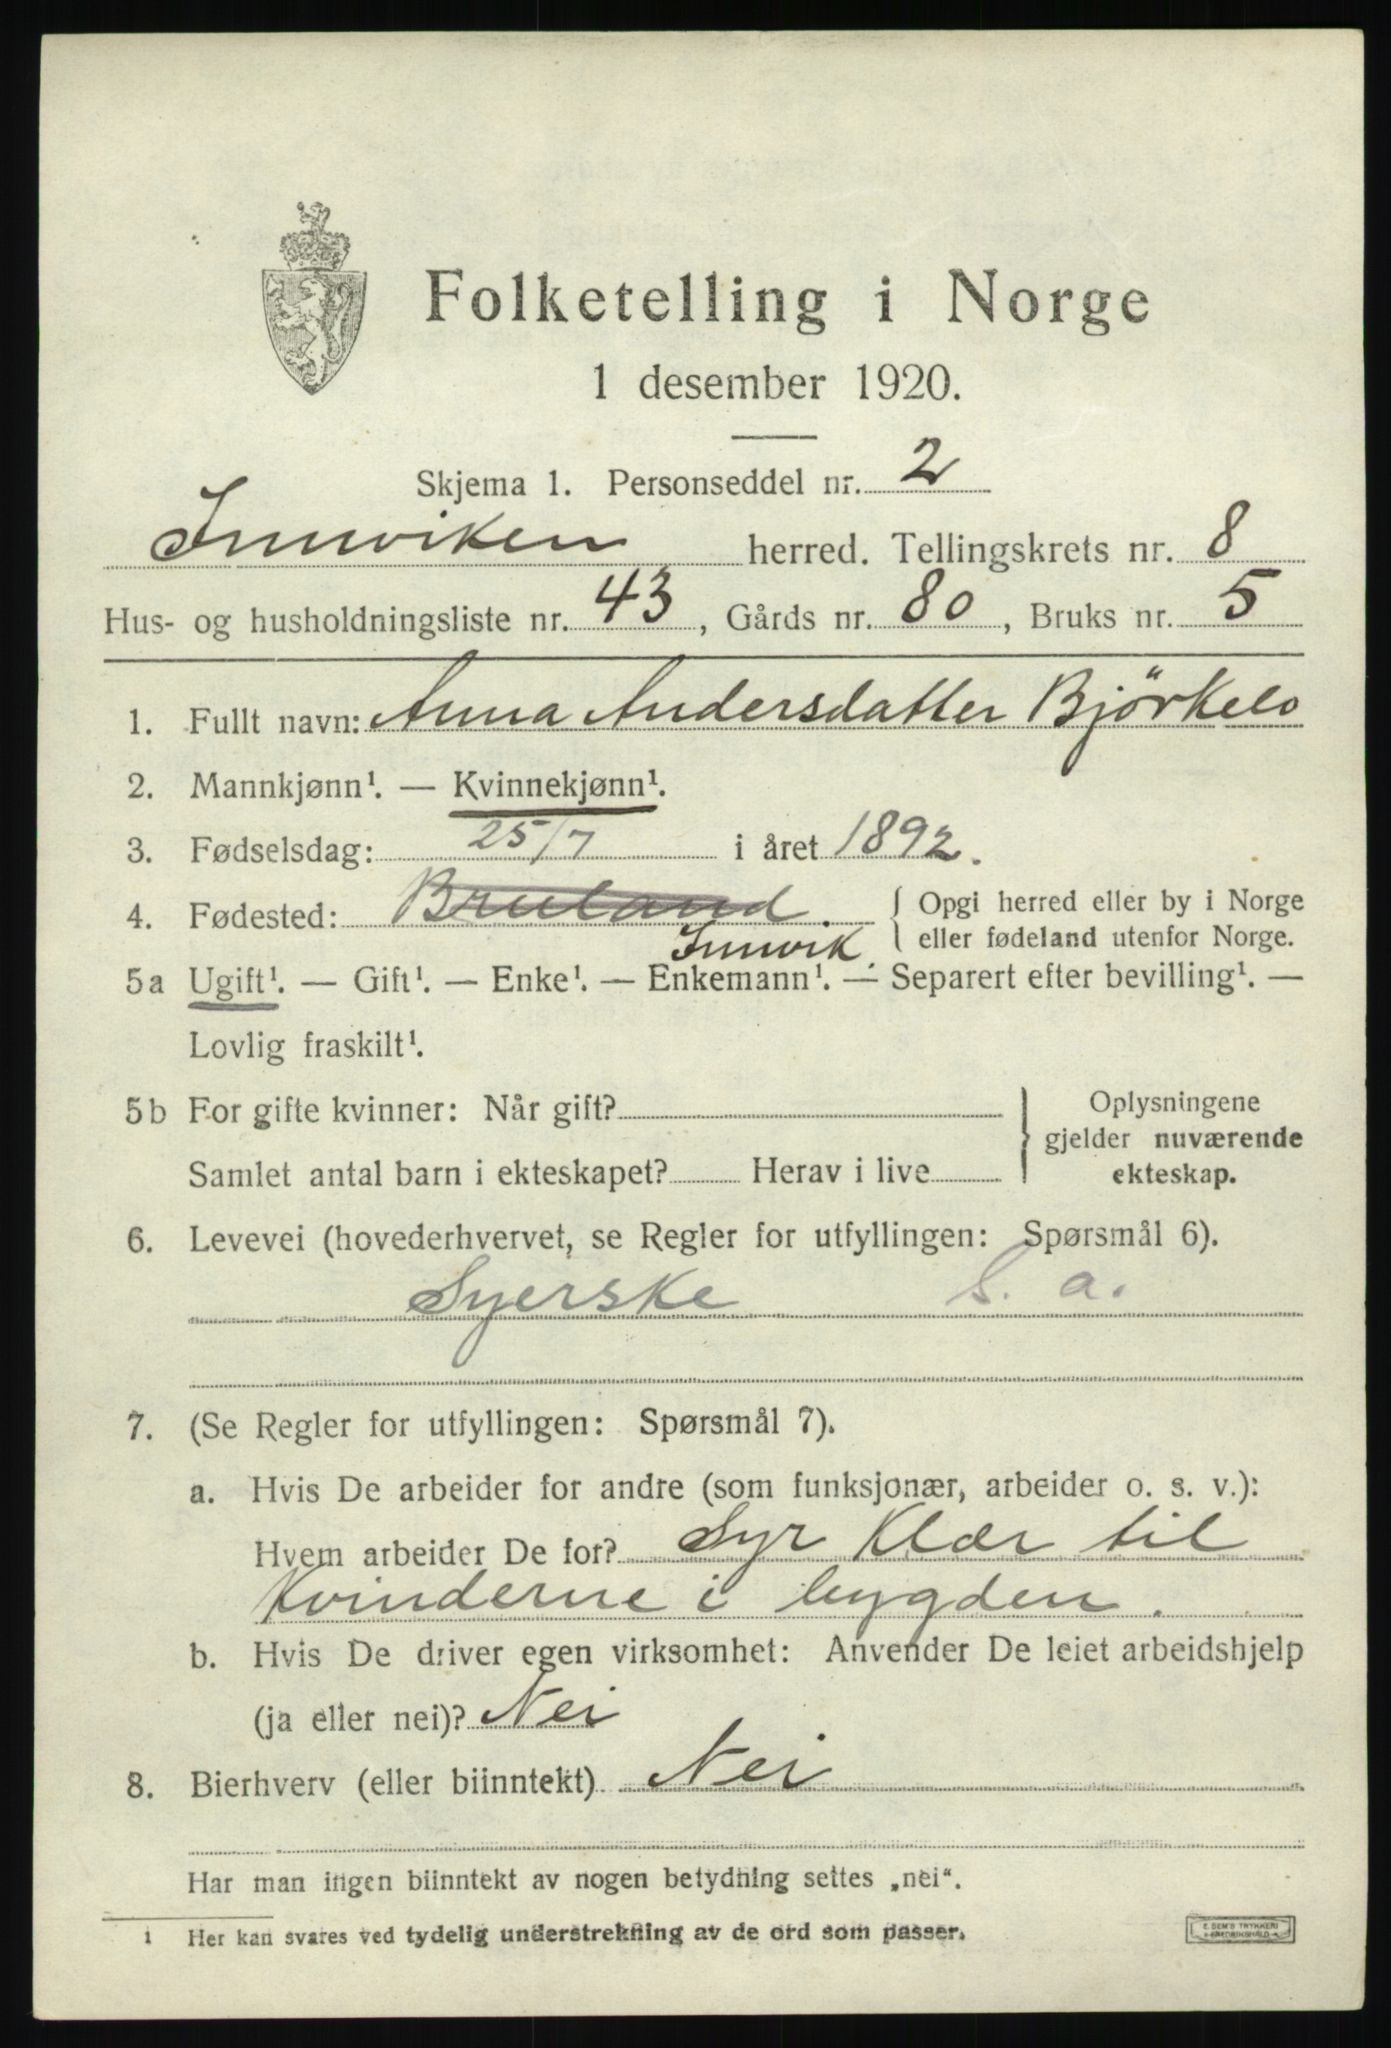 Folketelling i Norge
1 desember 1920.
Skjema 1. Personseddel nr. 2
Innviken herred. Tellingskrets nr. 8
Hus- og husholdningsliste nr. 43, Gårds nr. 80, Bruks nr. 5
1. Fullt navn: Anna Andersdatter Björkelo
2. Mannkjønn¹. — Kvinnekjønn¹.
3. Fødselsdag: 25/7 i året 1892.
4. Fødested: Bruland. { Opgi herred eller by i Norge
Innvik. eller fødeland utenfor Norge.
5a Ugift¹. — Gift¹. — Enke¹. — Enkemann¹. — Separert efter bevilling¹. —
Lovlig fraskilt¹.
5b For gifte kvinner: Når gift? } Oplysningene
gjelder nuværende
Samlet antal barn i ekteskapet? Herav i live ekteskap.
6. Levevei (hovederhvervet, se Regler for utfyllingen: Spørsmål 6).
Syerske S. a.
7. (Se Regler for utfyllingen: Spørsmål 7).
a. Hvis De arbeider for andre (som funksjonær, arbeider o. s. v.):
Hvem arbeider De for? Syr Klær til
Kvinderne i bygden.
b. Hvis De driver egen virksomhet: Anvender De leiet arbeidshjelp
(ja eller nei)? Nei
8. Bierhverv (eller biinntekt) Nei
Har man ingen biinntekt av nogen betydning settes „nei“.
1 Her kan svares ved tydelig understrekning av de ord som passer.
E. SEM'S TRYKKERI
FREDRIKSHALD